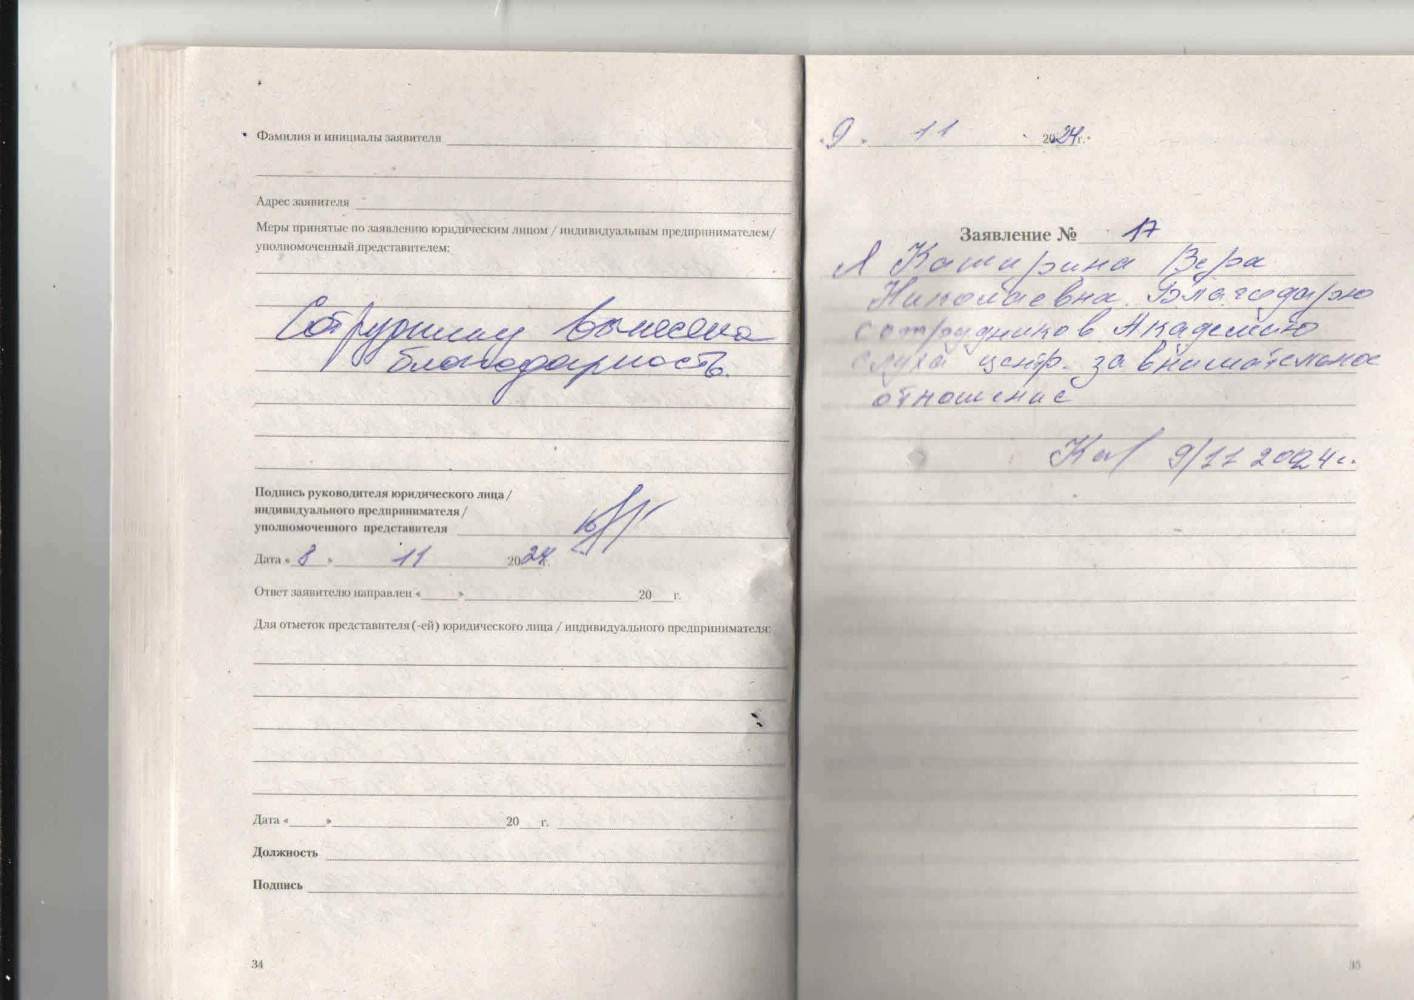 Фамилия и инициалы заявителя
Адрес заявителя
Меры принятые по заявлению юридическим лицом / индивидуальным предпринимателем/
уполномоченный представителем:
Сотруднику вынесена
благодарность.
Подпись руководителя юридического лица /
индивидуального предпринимателя /
уполномоченного представителя
Дата « 8 » 11 2024г.
Ответ заявителю направлен «____»____ 20__г.
Для отметок представителя (-ей) юридического лица / индивидуального предпринимателя:
Дата «____»____ 20__г.
Должность
Подпись
34
«9» 11 2024г.
Заявление № 17
Я Каширина Вера
Николаевна Благодарю
сотрудников Академию
слуха центр. за внимательное
отношение
9/11 2024 г.
35